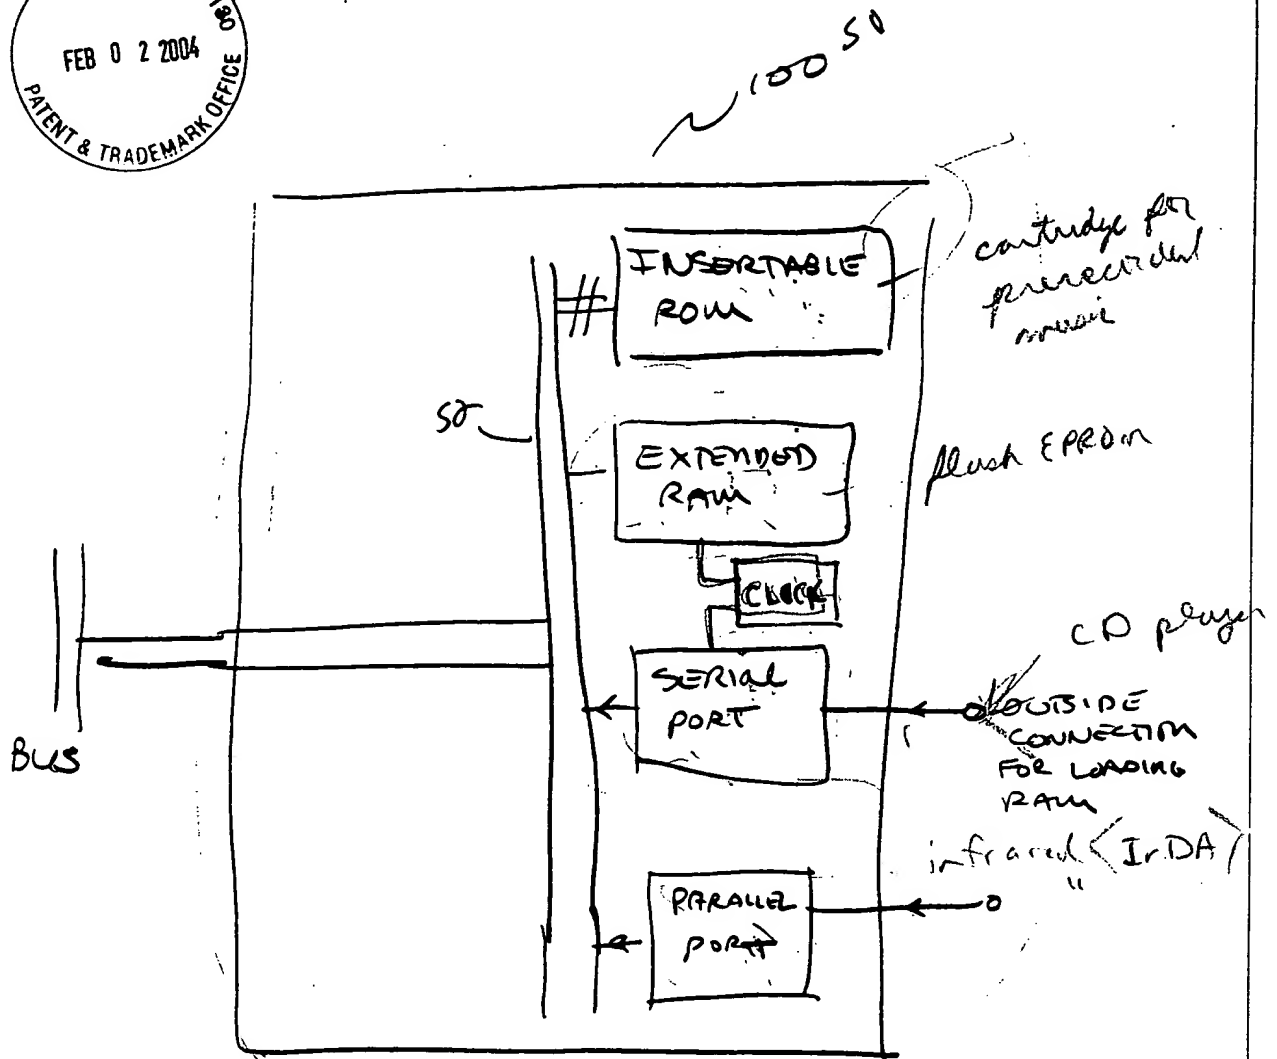 180
FEB 0 2 2004
PATENT & TRADEMARK OFFICE
100 50
INSERTABLE
ROM
cartridge for
prerecorded
music
52
EXTENDED
RAM
flash EPROM
CLOCK
CD player
SERIAL
PORT
OUTSIDE
CONNECTION
FOR LOADING
RAM
BUS
infrared <IrDA>
"
PARALLEL
PORT